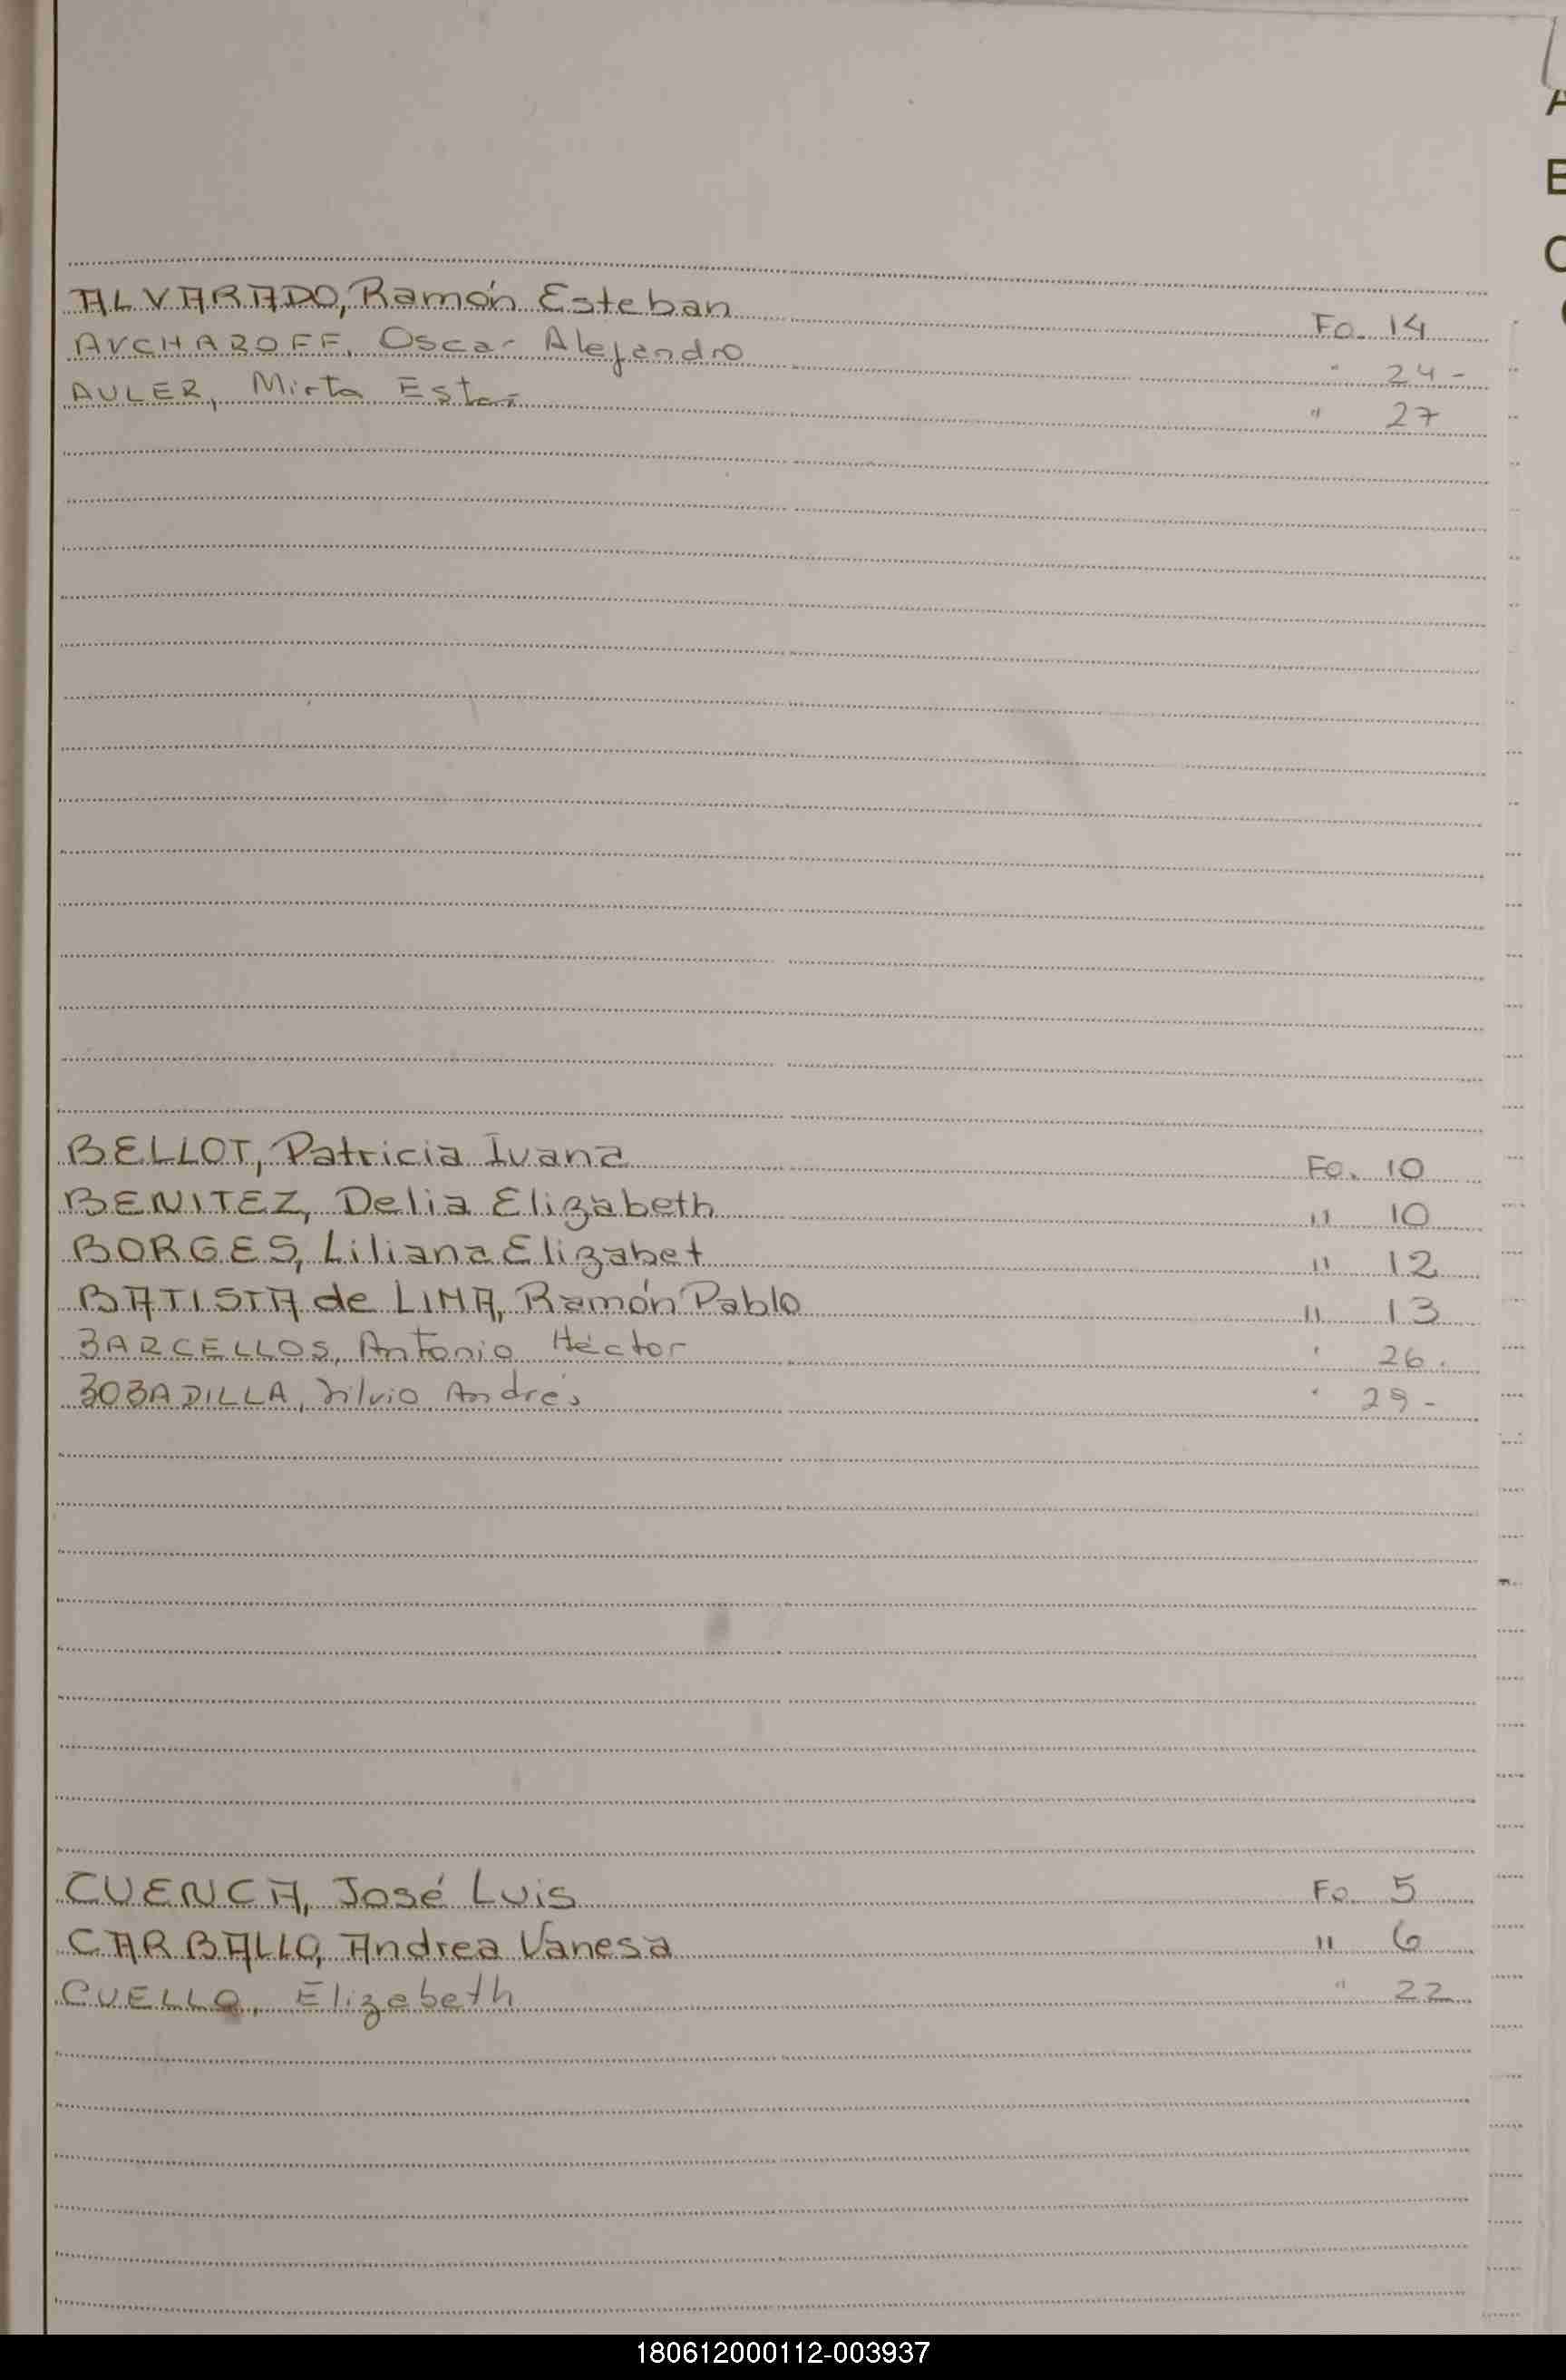 A
B
C
ALVARADO, Ramón Esteban Fo. 14
AVCHAROFF, Oscar Alejandro " 24 -
AULER, Mirta Ester " 27
BELLOT, Patricia Ivana Fo. 10
BENITEZ, Delia Elizabeth " 10
BORGES, Liliana Elizabet " 12
BATISTA de LIMA, Ramón Pablo " 13
BARCELLOS, Antonio Héctor " 26.
BOBADILLA, Silvio Andrés " 29 -
CUENCA, José Luis Fo 5
CARBALLO, Andrea Vanesa " 6
CUELLO, Elizabeth " 22
180612000112-003937